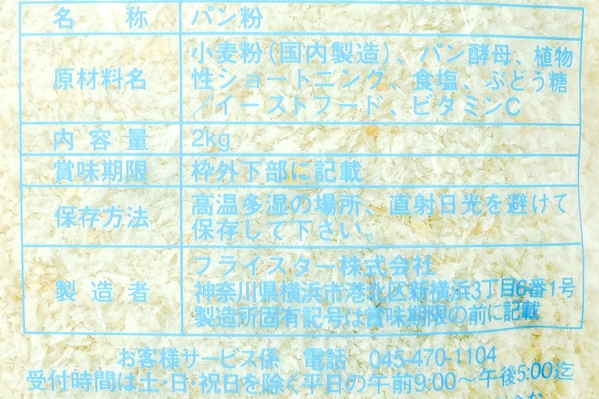 名称 パン粉
原材料名 小麦粉(国内製造)、パン酵母、植物
性ショートニング、食塩、ぶどう糖
/イーストフード、ビタミンC
内容量 2kg
賞味期限 枠外下部に記載
保存方法 高温多湿の場所、直射日光を避けて
保存して下さい。
製造者 フライスター株式会社
神奈川県横浜市港北区新横浜3丁目6番1号
製造所固有記号は賞味期限の前に記載
お客様サービス係 電話 045-470-1104
受付時間は土・日・祝日を除く平日の午前9:00〜午後5:00迄